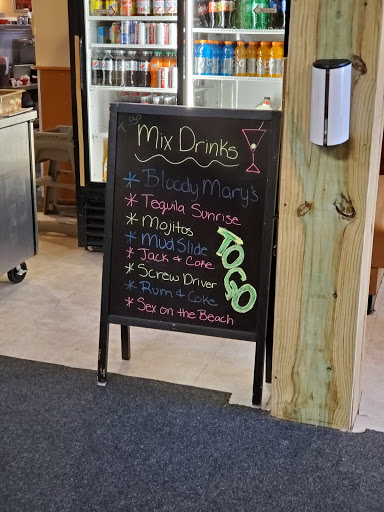 Mix Drinks
* Bloody Mary's
* Tequila Sunrise
* Mojitos
* Mud Slide
* Jack & Coke
* Screw Driver
* Rum & Coke
* Sex on the Beach
TO GO